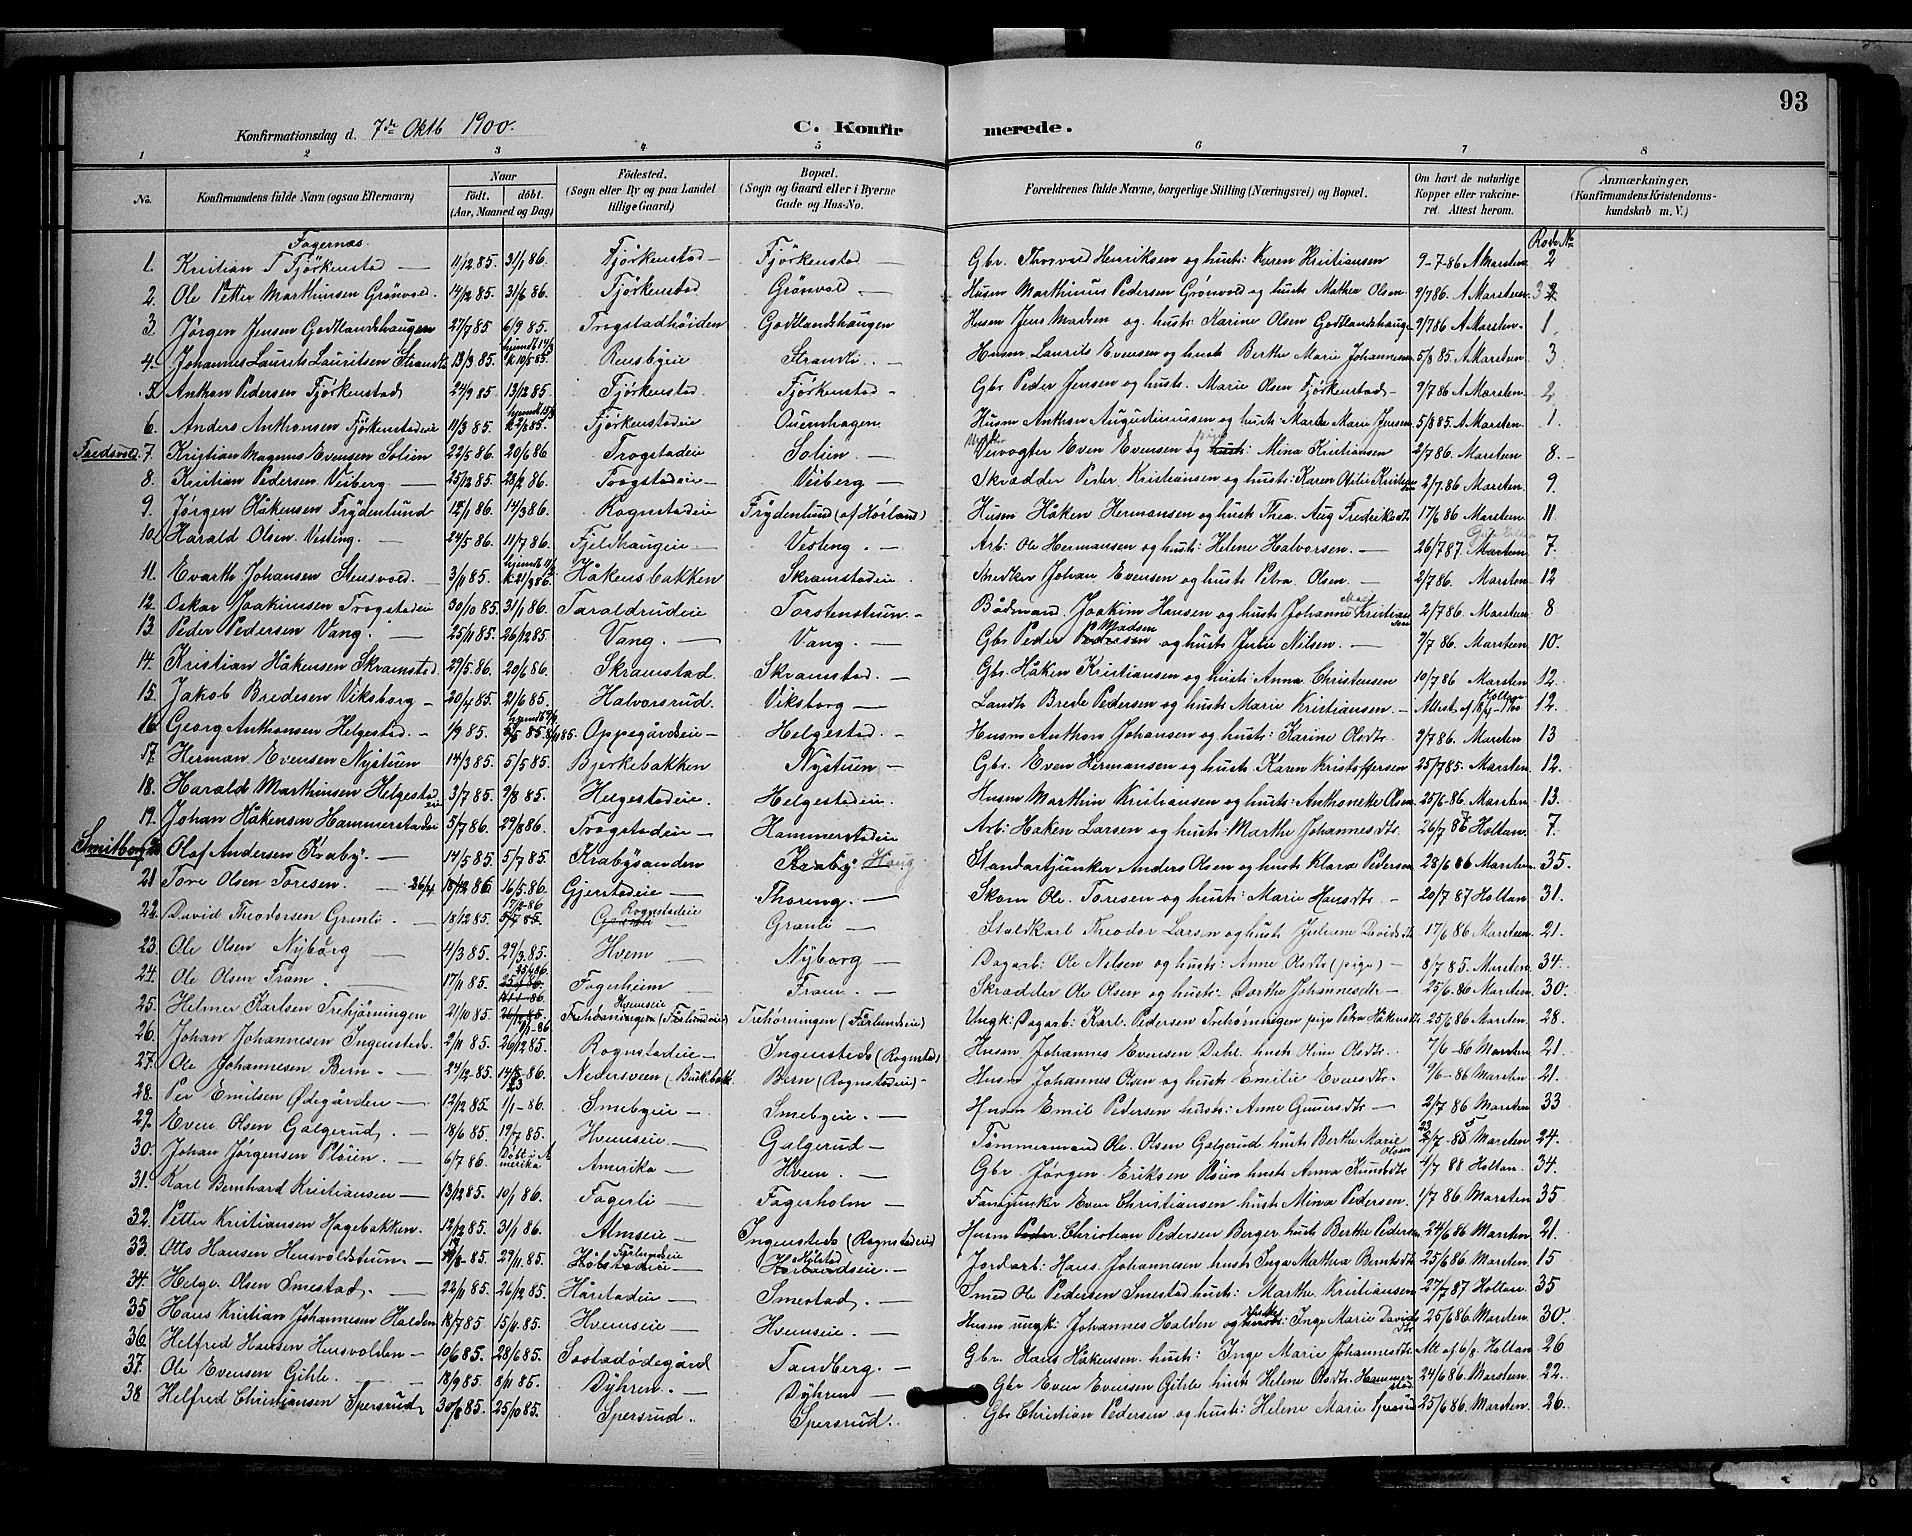 93
Konfirmationsdag d. 7de Oktb 1900.
C. Konfirmerede.
1 2 3 4 5 6 7 8
No. Konfirmandens fulde Navn (ogsaa Efternavn) Naar Født. døbt. (Aar, Maaned og Dag) Fødested. (Sogn eller By og paa Landet tillige Gaard) Bopæl. (Sogn og Gaard eller i Byerne Gade og Hus-No. Forældrenes fulde Navne, borgerlige Stilling (Næringsvei) og Bopæl. Om havt de naturlige Kopper eller vakcineret. Attest herom. Anmærkninger, (Konfirmandens Kristendomskundskab m. V.)
Fagernæs.
Rode No
1. Kristian T Fjörkenstad — 11/12 85. 31/1 86. Fjörkenstad — Fjörkenstad — Gbr. Thorvald Henriksen og hust: Karen Kristiansen 9-7-86 A Marsten 2
2. Ole Petter Marthinsen Grönvold. 14/12 85. 31/6 86. Fjörkenstad Grönvold — Husm Marthinus Pedersen Grönvold og hust: Mathea Olsen 9/7 86. A Marsten. 3
3. Jörgen Jensen Godtlandshaugen 27/7 85 6/9 85. Trogstadhöiden Godtlandshaugen Husm Jens Madsen og hust: Karine Olsen Godtlandshauge 9/7 86. A Marsten. 1.
4. Johannes Laurits Lauritsen Strandli 13/3 85. hjemdt 14/3 k. 10/5 85. Rensbyeie Strandli. — Husm Laurits Evensen og hust Berthe Marie Johannesen 5/8 85. A Marsten 3
5. Anthon Pedersen Fjörkenstad 24/9 85. 13/12 85. Fjörkenstad Fjörkenstad — Gbr Peder Jensen og hust. Marie Olsen Fjörkenstad — 9/7 86 A Marsten. 2
6. Anders Anthonsen Fjörkenstadeie 11/3 85. Fjörkenstadeie Ouernhagen Husm Anthon Augustinussen og hust Marthe Marie Jensen 5/8 85. A Marsten. 1.
Fredsvold 7. Kristian Magnus Evensen Solien 22/5 86. 20/6 86 Trogstadeie Solien — Veivogter Even Evensen og pige hust: Mina Kristiansen 2/7 86. Marsten 8. —
8. Kristian Pedersen Veiberg — 25/12 85. 28/2 86. Trogstadeie — Veiberg — Skrædder Peder Kristiansen og hust: Karen Otilie 2/7.86 Marsten. 9.
9. Jörgen Håkensen Frydenlund 12/1 86. 14/3 86. Rognstadeie Frydenlund (af Hörland) Husm Håken Hermansen og hust Thea Aug Frederiksdtr 17/6 86 Marsten. 11
10. Harald Olsen Vesting. — 24/5 86. 11/7 86. Fjeldhaugeie — Vesting. — Arb: Ole Hermansen og hust: Helene Halvorsen. — 26/7 87. Marsten 7.
11. Evarth Johansen Stensvold. — 3/11 85. hjemdt k. 21/3 86. Håkensbakken Skramstadeie. Snedker Johan Evensen og hust: Petra Olsen. — 2/7 86. Marsten — 12
12. Oskar Joakimsen Trogstadeie 30/10 85. 31/1 86. Taraldrudeie Torstenstuen — Bådmand Joakim Hansen og hust Johanne Kristiansen 2/7 86. Marsten. 8
13. Peder Pedersen Vang. — 25/11 85. 26/12 85. Vang. — Vang. — Gbr Peder Pedersen Madsen og hust: Julie Nilsen. — 9/7 86. Marsten 10.
14. Kristian Håkensen Skramstad 29/5 86. 20/6 86. Skramstad. Skramstad. — Gbr. Håken Kristiansen og hust: Anna Christensen 10/7 86 Marsten 12.
15. Jakob Bredesen Viksborg — 20/4 85. 21/6 85. Halvorsrud. Viksborg — Landh Brede Pedersen og hust: Marie Kristiansen — Attest af Holtan 12.
16. Georg Anthonsen Helgestad. — 1/9 85. Oppegårdseie — Helgestad. — Husm Anthon Johansen og hust: Karine Olsdtr. 9/7 86. Marsten 13
17. Herman Evensen Nystuen 14/3 85. 5/5 85. Bjerkebakken Nystuen — Gbr. Even Hermansen og hust: Karen Kristoffersen 25/7 85. Marsten. 12.
18. Harald Marthinsen Helgestadeie 3/7 85. 9/8 85. Helgestadeie. Helgestadeie. Husm Marthin Kristiansen og hust: Anthonette Olsen 25/6-86. Marsten. 13.
19. Johan Håkensen Hammerstadeie 5/7 86. 29/8 86. Trogstadeie — Hammerstadeie Arb: Haken Larsen og hust: Marthe Johannesdtr. 26/7 87 Holtan. 7.
Smitborg 20. Olaf Andersen Kraby. — 14/5 85. 5/7 85. Krabysanden Kraby Haug. Standartjunker Anders Olsen og hust Klara Pedersen 28/6 86 Marsten. 35.
21 Tore Olsen Toresen. — 26/4 18/12 86 16/5 86. Gjerstadeie — Thoreng. — Skom Ole. Toresen og hust: Marie Hansdtr. — 20/7 87 Holtan. 31.
22. David Theodorsen Grenli. — 18/2 85. 5/7 85. Rognstadeie Granli — Staldkarl Theodor Larsen og hust Juliane Davidsdtr 17/6 86 Marsten. 21.
23. Ole Olsen Nyborg — 4/3 85. 29/3 85. Hvem — Nyborg — Dagarb: Ole Nilsen og hust: Anne Olsdtr (pige) — 8/7 85. Marsten. 34.
24. Ole Olsen Fram. — 17/11 85. Fagerheim — Fram. — Skrædder Ole Olsen og hust: Dorthe Johannesdtr — 25/6.86 Marsten. 30.
25. Helmer Karlsen Trehjörningen 21/10 85. 26/12 85. Hvemseie Trehörningen (Färlundeie) Trehörningen (Färlundseie) Ungk: Dagarb: Karl. Pedersen Trehörningen pige Petra Håkensdtr 25/6 86 Marsten. 28.
26. Johan Johannesen Ingensteds. 2/11 85. 26/12 85. Rognstadeie — Ingensteds (Rognstad) Husm Johannes Evensen Dehl. hust Oline Olsdtr. 7/6-86 Marsten. 21
27. Ole Johannesen Bern. — 24/12 85. 14/3 86. Nedersveen (Buskebakk Bern (Rognstadeie) — Husm Johannes Olsen og hust: Emilie Evensdtr. 9/6-86 Marsten. 21.
28. Per Emilsen Ødegården — 12/12 85. 1/1-86. Smebyeie — Smebyeie. — Husm Emil Pedersen hust: Anne Gunersdtr — 2/7 86 Marsten. 33
29. Even Olsen Galgerud. — 18/6 85. 19/7 85. Hvemseie — Galgerud — Tømmermand Ole. Olsen Galgerud hust Berthe Marie Olsen Marsten. 24.
30. Johan Jörgensen Plöien. — 6/7 86. Döbt i Amerika Amerika — Hvem — Gbr. Jörgen Eriksen Plöien hust: Anna Knutsdtr 4/7 88 Holtan. 34.
31. Karl Bernhard Kristiansen — 13/12 85. 10/1 86. Fagerli — Fagerholm — Fanejunker Even Christiansen hust Mina Pedersen. 1/7 86 Marsten. 35
32. Petter Kristiansen Hagebakken. 12/12 85. 31/1 86. Almseie — Ingensteds (Rognstadeie) Husm Peder Christian Pedersen Berger hust Berthe Pedersen 24/6 86 Marsten. 21.
33. Otto Hansen Hensvoldstuen — 85. 29/11 85. Färlundseie Hölstadeie — Hölstad Horlundseie. — Jordarb: Hans Johannesen hust Inga Mathea Berntsdtr 25/6 86. Marsten 15
34. Helge Olsen Smestad. — 22/11 85. 26/12 85. Hårstadeie — Smestad. — Smed Ole Pedersen Smestad hust: Marthe Kristiansen 27/7 87 Holtan 35
35 Hans Kristian Johannesen Halden 18/7 85 15/11 85. Hvemseie — Hvemseie. — Husm ungk: Johannes Halden og hust: Inge Marie Davidsdtr 25/6 86. Marsten. 30.
36. Helfred Hansen Hensvolden — 10/6 85. 28/6 85. Sostadödegård Tandberg. — Gbr. Hans Håkensen. hust: Inge Marie Johannesdtr. Att af 6/8 Holtan 26
37. Ole Evensen Gihle. — 18/9 85 8/11 85. Dyhren. — Dyhren — Gbr Even Evensen Gihle hust Helene Olsdtr. Hammerstad 24/6 86. Marsten. 22.
38 Helfred Christiansen Spersrud. 30/8 85. 25/10 85. Spersrud. Spersrud. Gbr Christian Pedersen og hust: Helene Marie Spersrud 25/6 86. Marsten. 26.